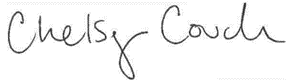 Chelsy Couch